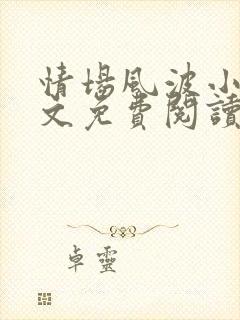 情場風波小
文免費閱讀
卓靈